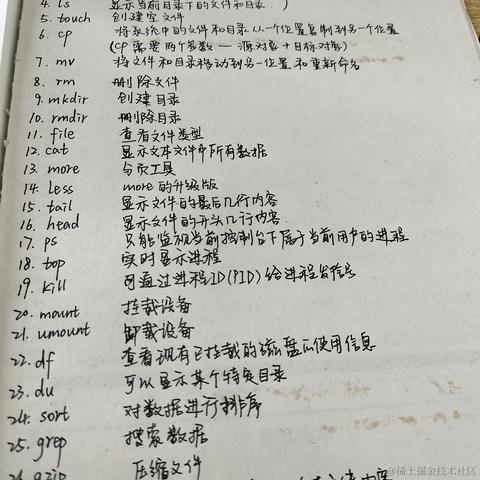 4. ls 显示当前目录下的文件和目录.)
5. touch 创建空文件
6. cp 将系统中的文件和目录从一个位置复制到另一个位置
(cp 需要两个参数 — 源对象+目标对象)
7. mv 将文件和目录移动到另一位置和重新命名
8. rm 删除文件
9. mkdir 创建目录
10. rmdir 删除目录
11. file 查看文件类型
12. cat 显示文本文件中所有数据
13. more 分页工具
14. less more的升级版
15. tail 显示文件的最后几行内容
16. head 显示文件的开头几行内容.
17. ps 只能监视当前控制台下属于当前用户的进程
18. top 实时显示进程
19. kill 可通过进程ID(PID)给进程发信号
20. mount 挂载设备
21. umount 卸载设备
22. df 查看现有已挂载的磁盘的使用信息
23. du 可以显示某个特定目录
24. sort 对数据进行排序
25. grep 搜索数据
26. gzip 压缩文件
@稀土掘金技术社区